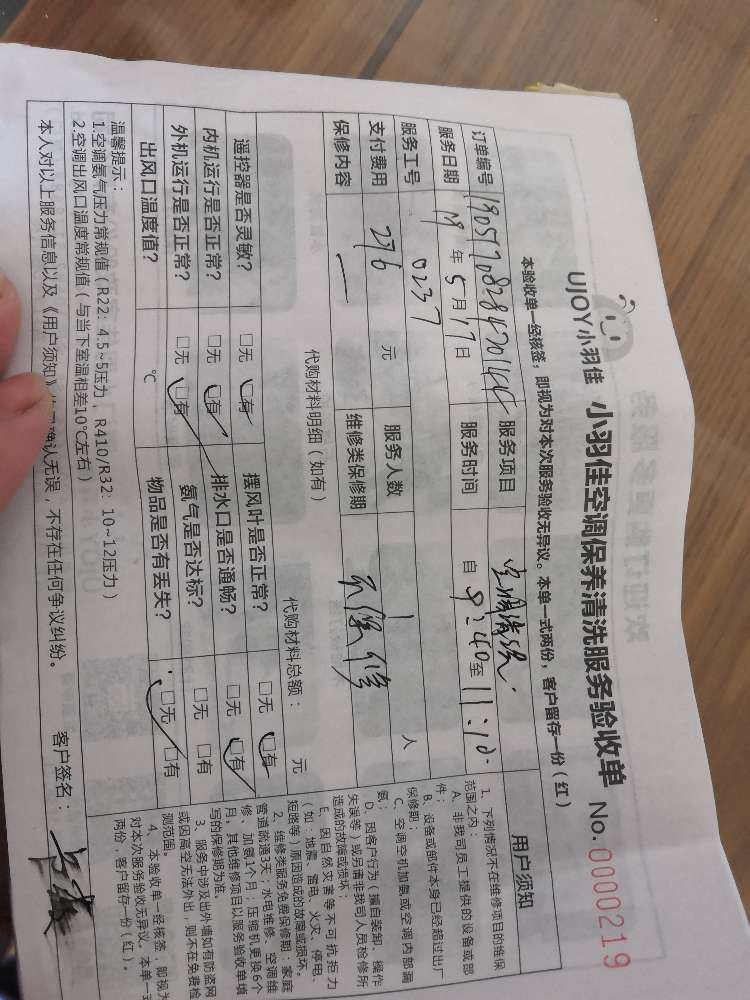 UJOY小羽佳 小羽佳空调保养清洗服务验收单 No.0000219
本验收单一经核签，即视为对本次服务验收无异议。本单一式两份，客户留存一份（红）
订单编号 服务项目 空调清洗
服务日期 19年5月17日 服务时间 自9:40至11:10
服务工号 0237 服务人数 1人
支付费用 276元 维修类保修期 不保修
保修内容 —
代购材料明细（如有） 代购材料总额： 元
遥控器是否灵敏？ □无 □有 摆风叶是否正常？ □无 □有
内机运行是否正常？ □无 □有 排水口是否通畅？ □无 □有
外机运行是否正常？ □无 □有 氨气是否达标？ □无 □有
出风口温度值？ ℃ 物品是否有丢失？ □无 □有
温馨提示：
1.空调氨气压力常规值（R22：4.5~5压力，R410/R32：10~12压力）
2.空调出风口温度常规值（与当下室温相差10℃左右）
本人对以上服务信息以及《用户须知》确认无误，不存在任何争议纠纷。 客户签名：
用户须知
1、下列情况不在维修项目的维保
范围之内：
A、非我司员工提供的设备或部
件；
B、设备或部件本身已经超过出厂
保修期；
C、空调空机加氨或空调内部漏
氨；
D、因客户行为（擅自装卸、操作
失误等）或另请非我司人员检修所
造成的故障或损坏；
E、因自然灾害等不可抗拒力
如：地震、雷电、火灾、停电、
短路等）原因造成的故障或损坏。
2、维修类服务免费保修期：家庭
管道疏通3天；水电维修、空调维
修、加氨1个月；压缩机更换6个
月。其他维修项目以服务验收单填
写的保修期为准。
3、服务中涉及出外墙如有防盗网
或因高空无法外出，则不在免费检
测范围。
4、本验收单一经核签，即视为
对本次服务验收无异议。本单一式
两份，客户留存一份（红）。